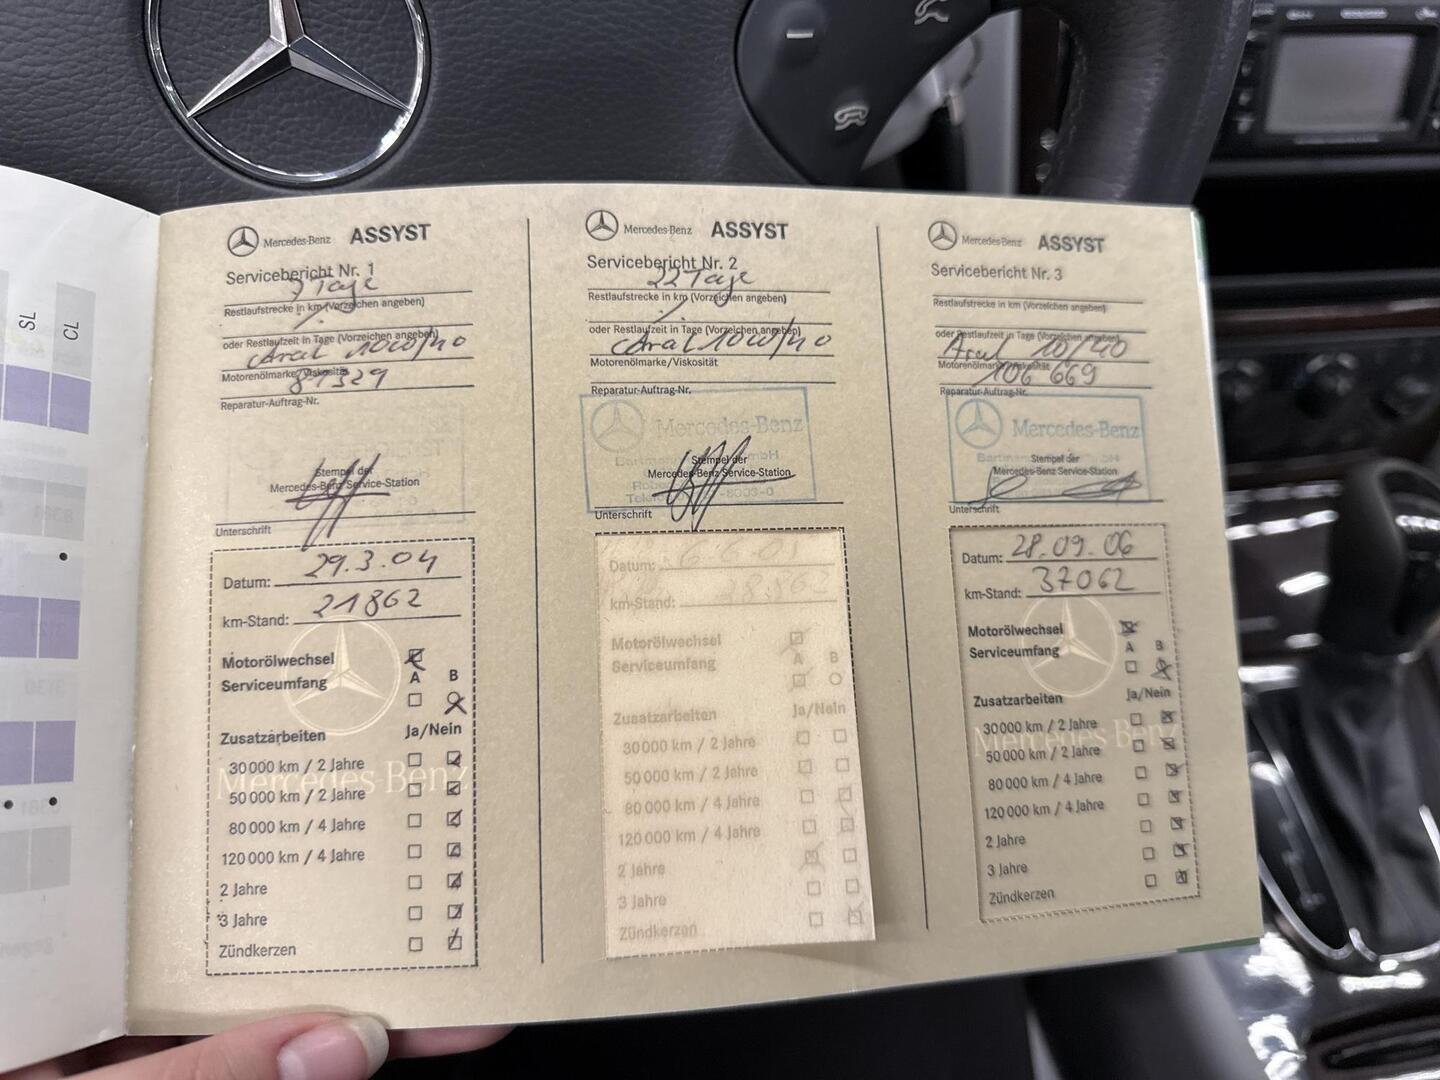 SL
CL
Mercedes-Benz ASSYST
Servicebericht Nr. 1
7 Tage
Restlaufstrecke in km (Vorzeichen angeben)
oder Restlaufzeit in Tage (Vorzeichen angeben)
Aral 10W/40
Motorenölmarke/Viskosität
81329
Reparatur-Auftrag-Nr.
Stempel der
Mercedes-Benz Service-Station
Unterschrift
Datum: 29.3.04
km-Stand: 21862
Motorölwechsel
A B
Serviceumfang
Zusatzarbeiten Ja/Nein
30000 km / 2 Jahre
Mercedes-Benz
50000 km / 2 Jahre
80000 km / 4 Jahre
120000 km / 4 Jahre
2 Jahre
3 Jahre
Zündkerzen
Mercedes-Benz ASSYST
Servicebericht Nr. 2
22 Tage
Restlaufstrecke in km (Vorzeichen angeben)
oder Restlaufzeit in Tage (Vorzeichen angeben)
Aral 10W/40
Motorenölmarke/Viskosität
Reparatur-Auftrag-Nr.
Mercedes-Benz
Stempel der
Mercedes-Benz Service-Station
Unterschrift
Datum:
km-Stand:
Motorölwechsel
A B
Serviceumfang
Zusatzarbeiten Ja/Nein
30000 km / 2 Jahre
50000 km / 2 Jahre
80000 km / 4 Jahre
120000 km / 4 Jahre
2 Jahre
3 Jahre
Zündkerzen
Mercedes-Benz ASSYST
Servicebericht Nr. 3
Restlaufstrecke in km (Vorzeichen angeben)
oder Restlaufzeit in Tage (Vorzeichen angeben)
Aral 10/40
Motorenölmarke/Viskosität
106 669
Reparatur-Auftrag-Nr.
Mercedes-Benz
Stempel der
Mercedes-Benz Service-Station
Unterschrift
Datum: 28.09.06
km-Stand: 37062
Motorölwechsel
A B
Serviceumfang
Zusatzarbeiten Ja/Nein
30000 km / 2 Jahre
Mercedes-Benz
50000 km / 2 Jahre
80000 km / 4 Jahre
120000 km / 4 Jahre
2 Jahre
3 Jahre
Zündkerzen